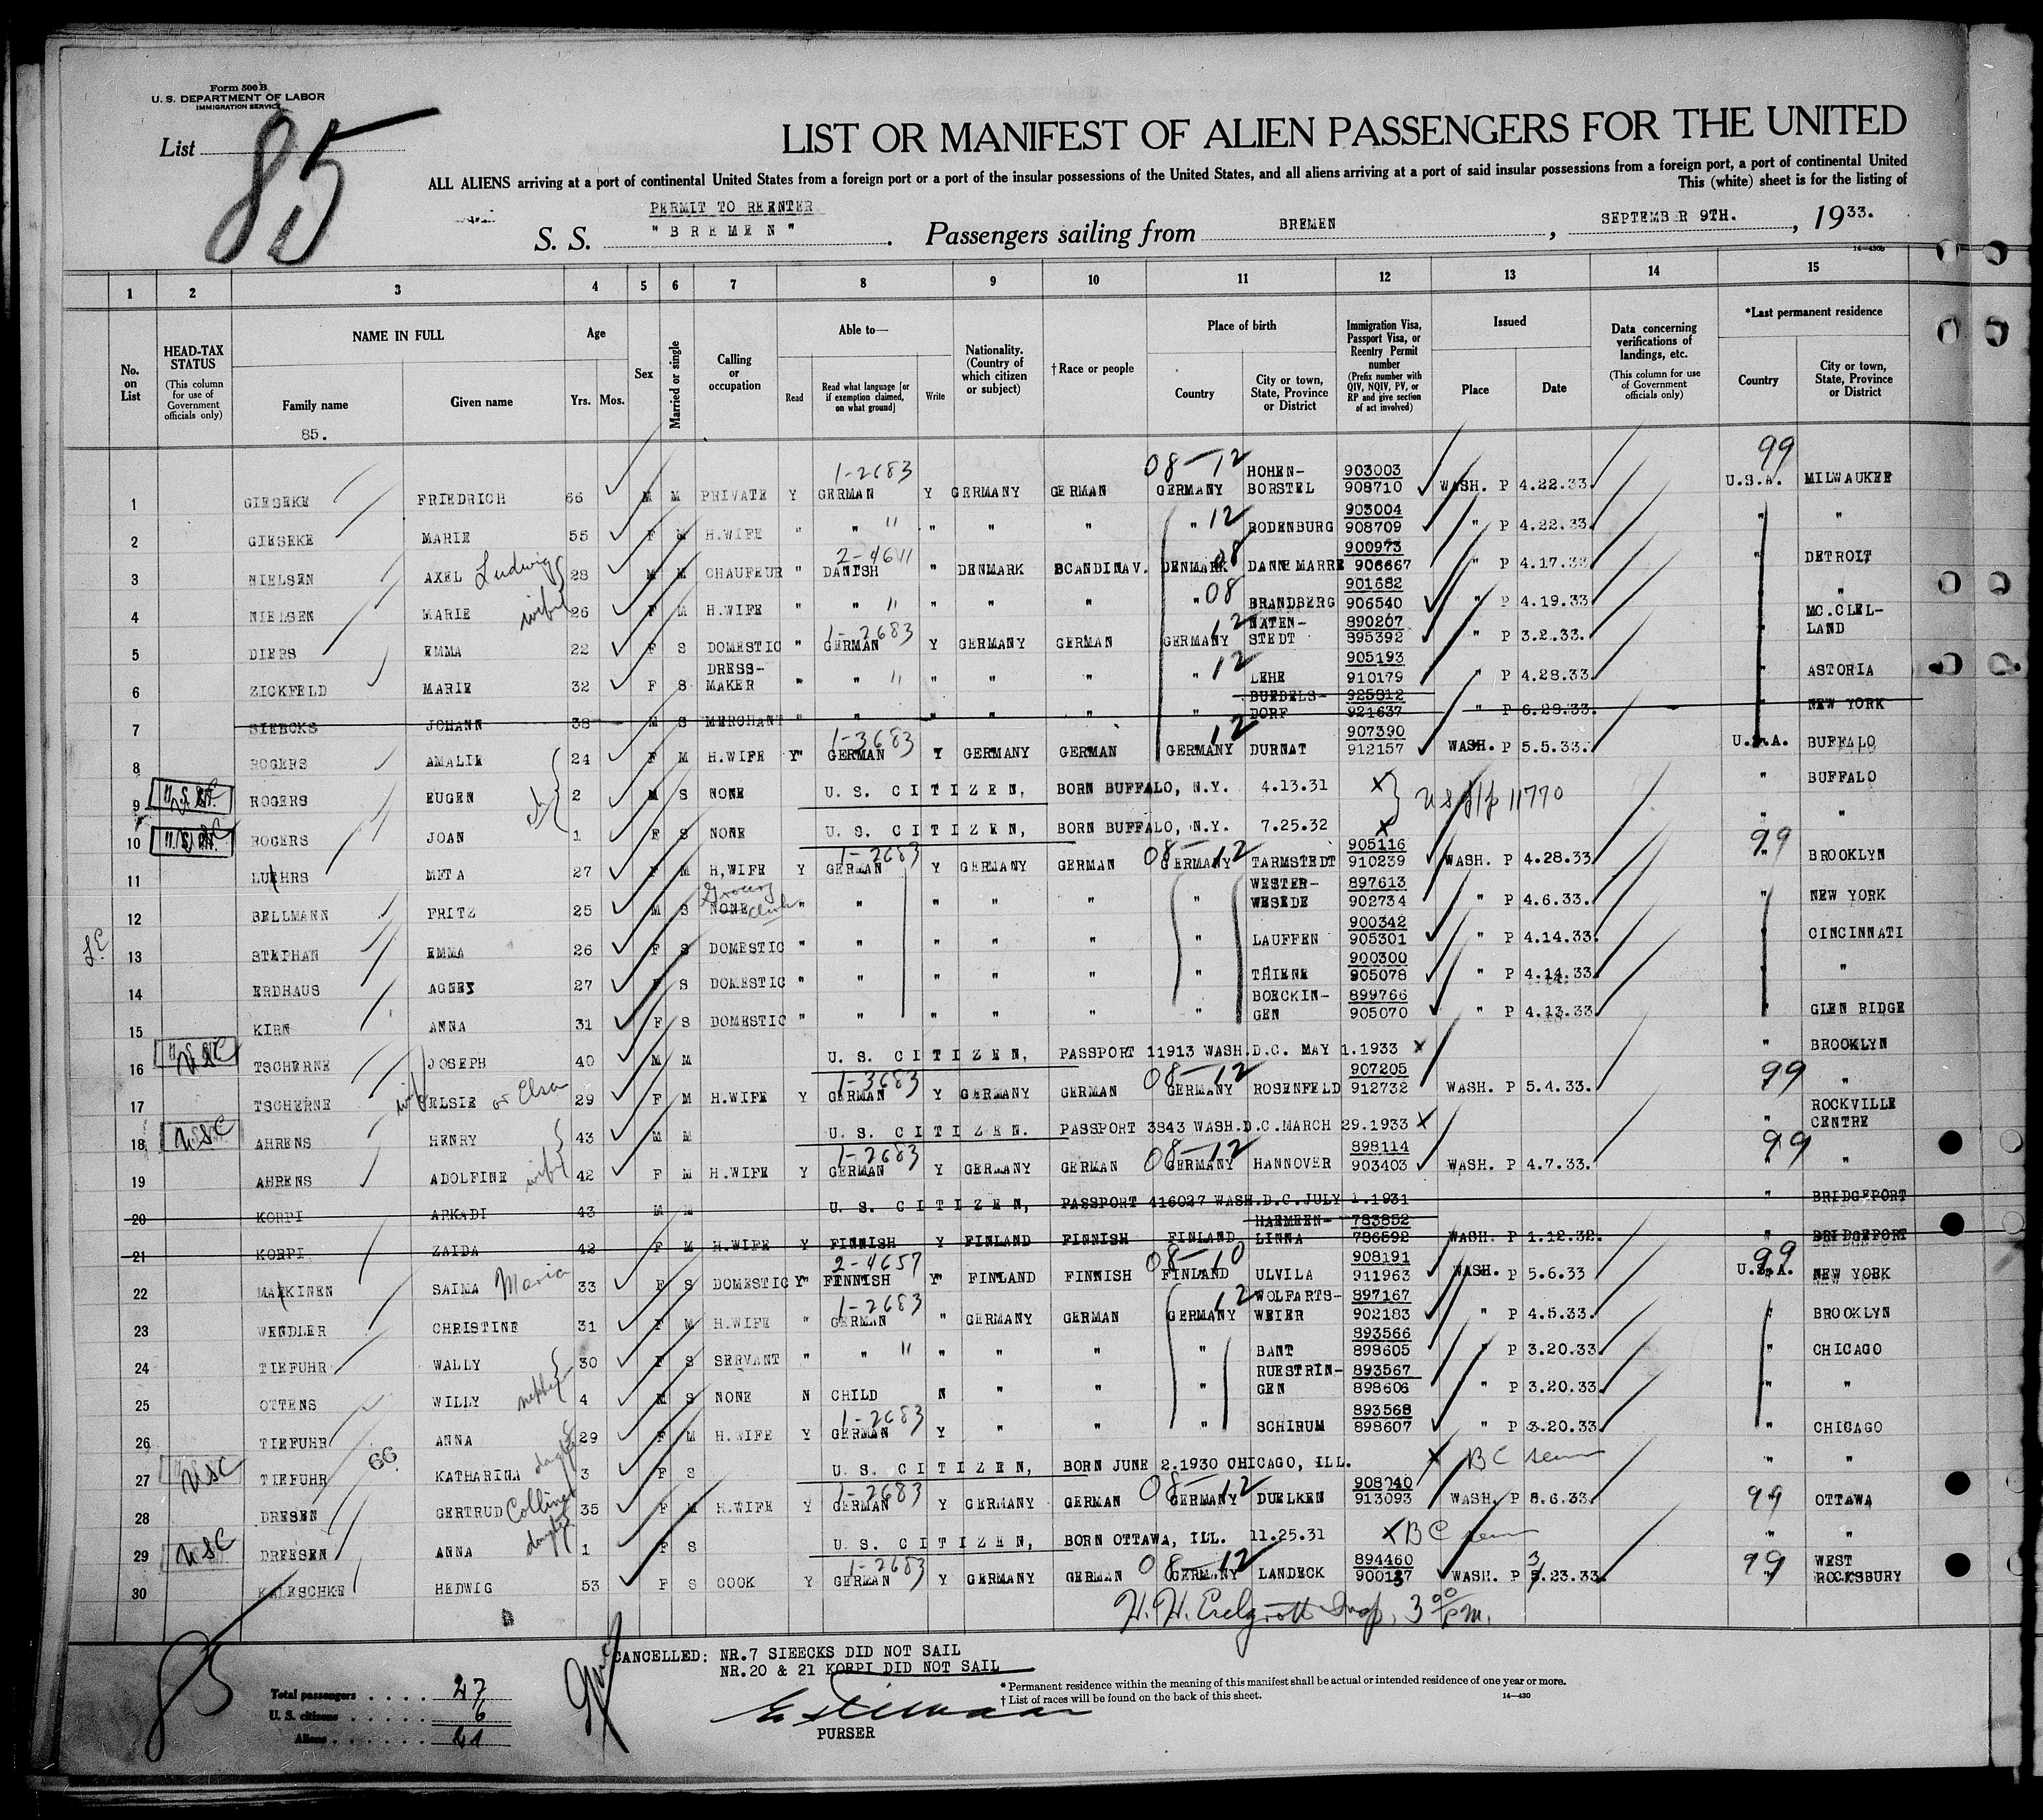 Form 500 B
U. S. DEPARTMENT OF LABOR
IMMIGRATION SERVICE
List 85
LIST OR MANIFEST OF ALIEN PASSENGERS FOR THE UNITED
ALL ALIENS arriving at a port of continental United States from a foreign port or a port of the insular possessions of the United States, and all aliens arriving at a port of said insular possessions from a foreign port, a port of continental United
This (white) sheet is for the listing of
PERMIT TO REENTER
S. S. "BREMEN". Passengers sailing from BREMEN, SEPTEMBER 9TH., 1933.
14—430b
1 2 3 4 5 6 7 8 9 10 11 12 13 14 15
No. on List
HEAD-TAX STATUS (This column for use of Government officials only)
NAME IN FULL Family name Given name
Age Yrs. Mos.
Sex
Married or single
Calling or occupation
Able to— Read Read what language [or if exemption claimed, on what ground] Write
Nationality. (Country of which citizen or subject)
†Race or people
Place of birth Country City or town, State, Province or District
Immigration Visa, Passport Visa, or Reentry Permit number (Prefix number with QIV, NQIV, PV, or RP and give section of act involved)
Issued Place Date
Data concerning verifications of landings, etc. (This column for use of Government officials only)
*Last permanent residence Country City or town, State, Province or District
85.
1-2683 08-12 HOHEN- 903003 99
1 GIESEKE FRIEDRICH 66 M M PRIVATE Y GERMAN Y GERMANY GERMAN GERMANY BORSTEL 908710 WASH. P 4.22.33. U.S.A. MILWAUKEE
12 903004
2 GIESEKE MARIE 55 F M H.WIFE " " " " " " " RODENBURG 908709 " P 4.22.33. " "
2-4641 08 900973
3 NIELSEN AXEL Ludwig 28 M M CHAUFEUR " DANISH " DENMARK SCANDINAV. DENMARK DANNEMARRE 906667 " P 4.17.33 " DETROIT
08 901682
4 NIELSEN MARIE wife 26 F M H.WIFE " " " " " " " BRANDBERG 906540 " P 4.19.33 " "
1-2683 12 NATEN- 890267 MC.CLEL-
5 DIERS EMMA 22 F S DOMESTIC " GERMAN Y GERMANY GERMAN GERMANY STEDT 895392 " P 3.2.33. LAND
DRESS- 12 905193
6 ZICKFELD MARIE 32 F S MAKER " " " " " " " LEHE 910179 " P 4.28.33 " ASTORIA
BUEDELS- 925812
7 SIERCKS JOHANN 38 M S MERCHANT " " " " " " DORF 921637 " P 6.29.33. " NEW YORK
1-3683 12 907390
8 ROGERS AMALIE 24 F M H.WIFE Y" GERMAN Y GERMANY GERMAN GERMANY DURNAT 912157 WASH. P 5.5.33. U.S.A. BUFFALO
9 ROGERS EUGEN 2 M S NONE U. S. CITIZEN, BORN BUFFALO, N.Y. 4.13.31 X " BUFFALO
11770
10 ROGERS JOAN 1 F S NONE U. S. CITIZEN, BORN BUFFALO, N.Y. 7.25.32 X " "
1-2683 08-12 905116 99
11 LUEHRS META 27 F M H,WIFE Y GERMAN Y GERMANY GERMAN GERMANY TARMSTEDT 910239 WASH. P 4.28.33 " BROOKLYN
Grocery clerk WESTER- 897613
12 BELLMANN FRITZ 25 M S NONE " " " " " " WESEDE 902734 " P 4.6.33. " NEW YORK
900342
13 STEPHAN EMMA 26 F S DOMESTIC " " " " " " LAUFFEN 905301 " P 4.14.33. CINCINNATI
900300
14 ERDHAUS AGNES 27 F S DOMESTIC " " " " " " THIENE 905078 " P 4.14.33. " "
BOECKIN- 899766
15 KIRN ANNA 31 F S DOMESTIC " " " " " " GEN 905070 " P 4.13.33 " GLEN RIDGE
16 USC TSCHERNE JOSEPH 40 M M U. S. CITIZEN, PASSPORT 11913 WASH.D.C. MAY 1.1933 X " BROOKLYN
1-3683 08-12 907205 99
17 TSCHERNE wife ELSIE or Elsa 29 F M H.WIFE Y GERMAN Y GERMANY GERMAN GERMANY ROSENFELD 912732 WASH. P 5.4.33. "
18 USC AHRENS HENRY 43 M M U. S. CITIZEN. PASSPORT 3843 WASH.D.C.MARCH 29.1933 X " ROCKVILLE CENTRE
1-2683 08-12 898114 99
19 AHRENS ADOLFINE wife 42 F M H.WIFE Y GERMAN Y GERMANY GERMAN GERMANY HANNOVER 903403 WASH. P 4.7.33. " "
20 KORPI ARKADI 43 M M U. S. CITIZEN, PASSPORT 416027 WASH.D.C.JULY 1.1931 " BRIDGEPORT
HAEMEEN- 783852
21 KORPI ZAIDA 42 F M H.WIFE Y FINNISH Y FINLAND FINNISH FINLAND LINNA 786592 WASH. P 1.12.32. " BRIDGEPORT
2-4657 08-10 908191 99
22 MAKKINEN SAIMA Maria 33 F S DOMESTIC Y" FINNISH Y" FINLAND FINNISH FINLAND ULVILA 911963 WASH. P 5.6.33 U.S.A. NEW YORK
1-2683 12 WOLFARTS- 897167
23 WENDLER CHRISTINE 31 F M H.WIFE " GERMAN " GERMANY GERMAN GERMANY WEIER 902183 " P 4.5.33. " BROOKLYN
893566
24 TIEFUHR WALLY 30 F S SERVANT " " " " " " BANT 898605 " P 3.20.33. " CHICAGO
RUESTRIN- 893567
25 OTTENS WILLY nephew 4 M S NONE N CHILD N " " " GEN 898606 " P 3.20.33. " "
1-2683 893568
26 TIEFUHR ANNA 29 F M H.WIFE Y GERMAN Y " " " SCHIRUM 898607 " P 3.20.33. CHICAGO
27 USC TIEFUHR 66 KATHARINA daughter 3 F S U. S. CITIZEN, BORN JUNE 2.1930 CHICAGO, ILL. X BC seen " "
1-2683 08-12 908040
28 DRESEN GERTRUD Collines 35 F M H.WIFE Y GERMAN Y GERMANY GERMAN GERMANY DUELKEN 913093 WASH. P 5.6.33. 99 OTTAWA
29 USC DREESEN ANNA daughter 1 F S U. S. CITIZEN, BORN OTTAWA, ILL. 11.25.31 X BC seen " "
1-2683 08-12 894460 3 99 WEST
30 KALESCHKE HEDWIG 53 F S COOK Y GERMAN Y GERMANY GERMAN GERMANY LANDECK 900137 WASH. P 3.23.33. ROCKSBURY
H. H. Insp. 3 00 pm.
85
CANCELLED: NR.7 SIEECKS DID NOT SAIL
NR.20 & 21 KORPI DID NOT SAIL
*Permanent residence within the meaning of this manifest shall be actual or intended residence of one year or more.
†List of races will be found on the back of this sheet. 14—430
Total passengers . . . . 27
U. S. citizens . . . . . 6
Aliens . . . . . . 21
PURSER